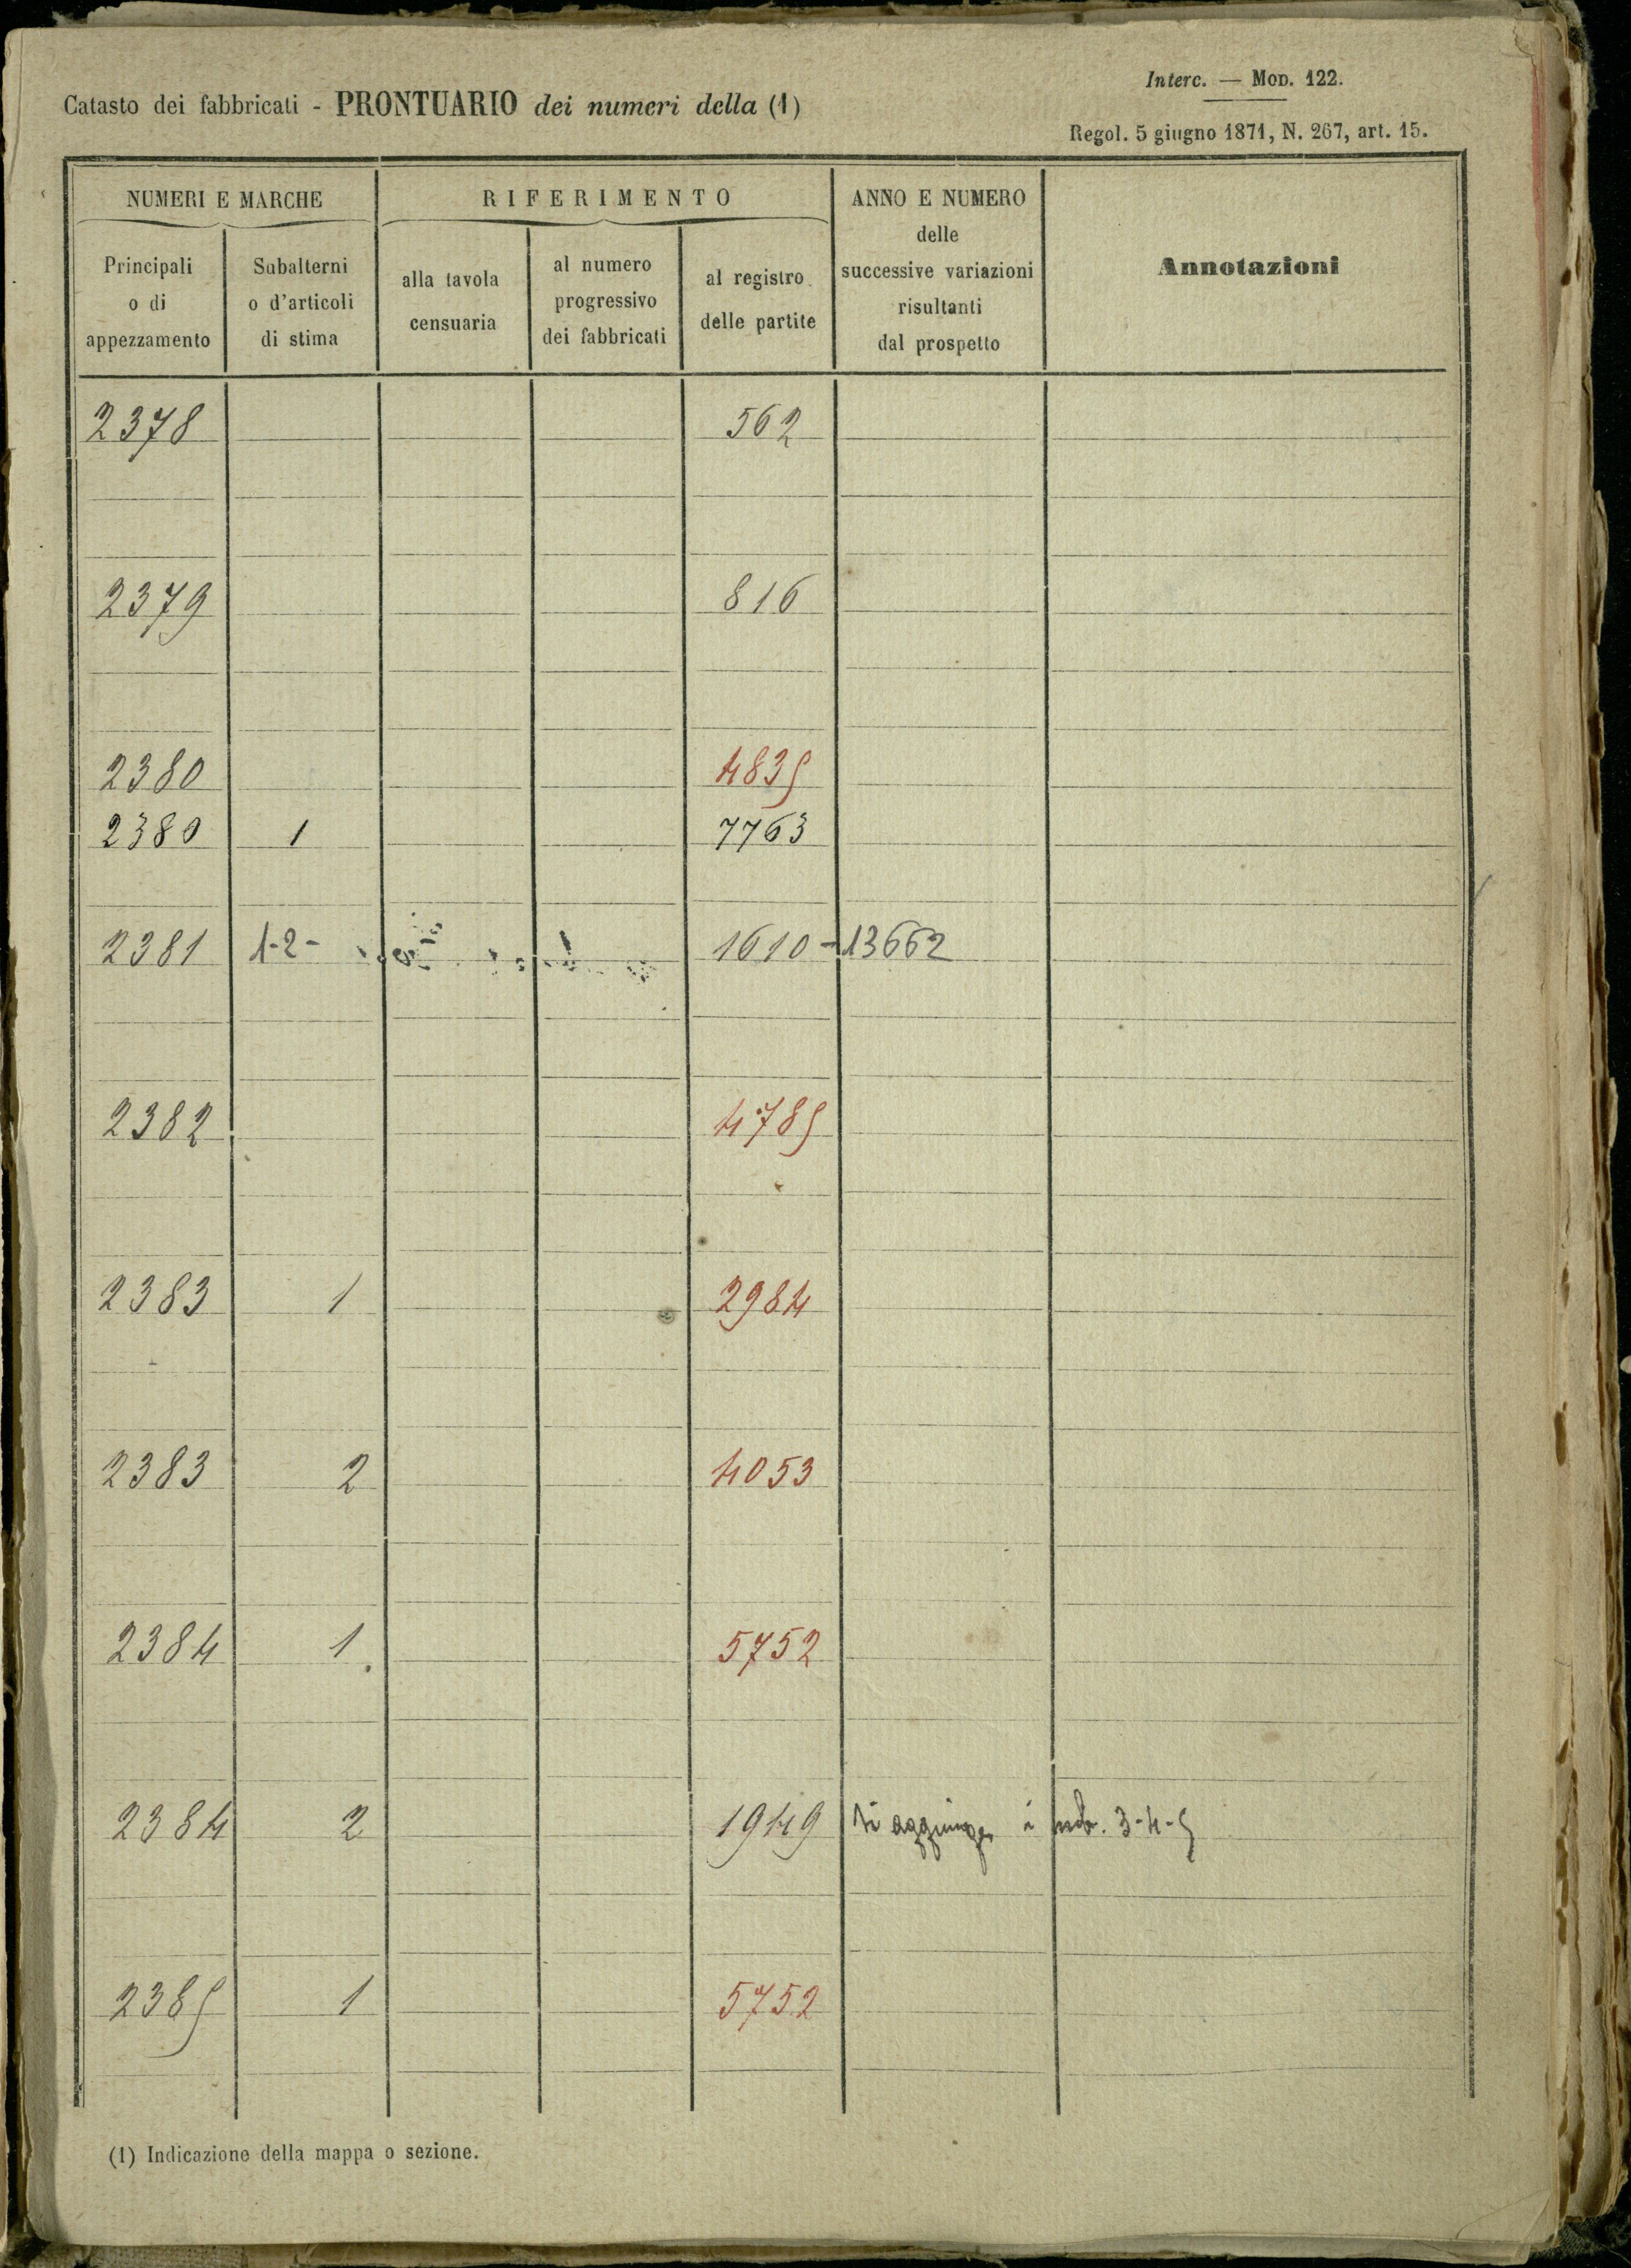 Interc. — Mod. 122.
Catasto dei fabbricati - PRONTUARIO dei numeri della (1)
Regol. 5 giugno 1871, N. 267, art. 15.
NUMERI E MARCHE
RIFERIMENTO
ANNO E NUMERO
delle
successive variazioni
risultanti
dal prospetto
Annotazioni
Principali
o di
appezzamento
Subalterni
o d'articoli
di stima
alla tavola
censuaria
al numero
progressivo
dei fabbricati
al registro
delle partite
2378 562
2379 816
2380 4835
2380 1 7763
2381 1-2- 1610-13662
2382 4785
2383 1 2984
2383 2 4053
2384 1 5752
2384 2 1949 si aggiunge i sub. 3-4-5
2385 1 5752
(1) Indicazione della mappa o sezione.